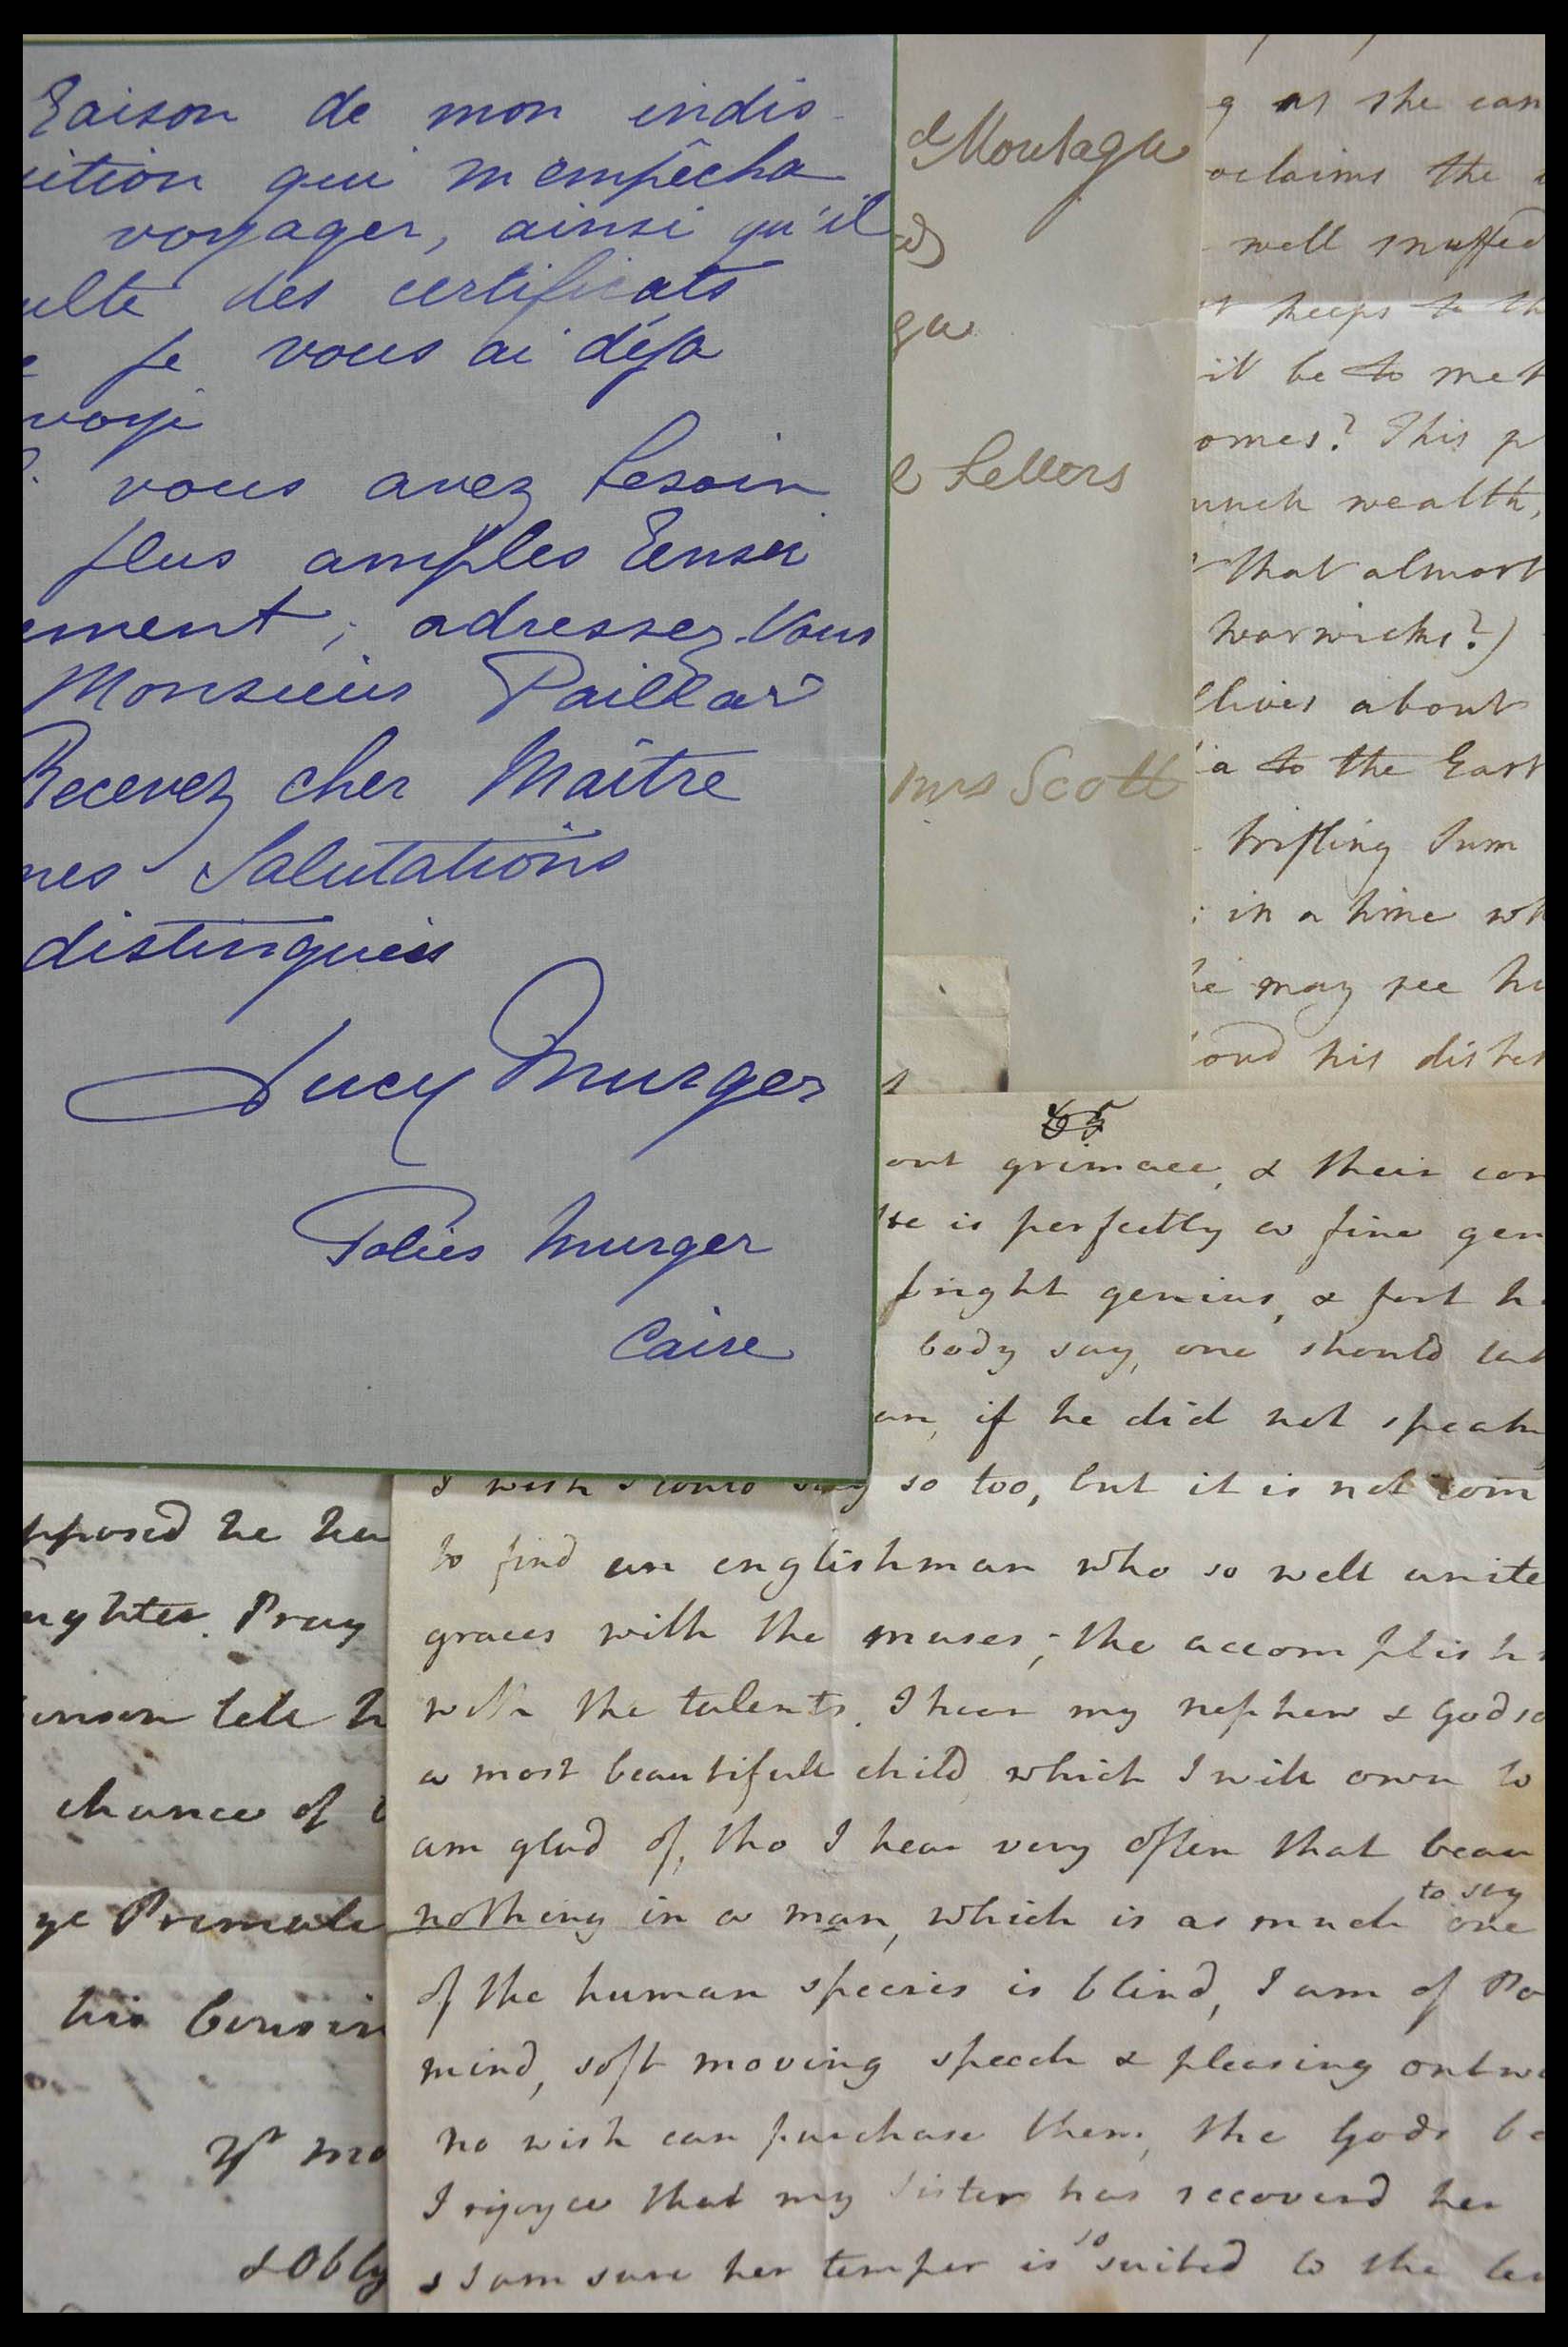 raison de mon indis
sition qui m'empêcha
voyager, ainsi qu'il
ulte des certificats
je vous ai déja
voyé
vous avez besoin
plus amples rensei
ement, adressez-Vous
Monsieur Paillar
Recevez cher Maître
mes Salutations
distinguées
Lucy Murger
Murger
Caire
Montagu
gu
Letters
Mrs Scott
g as she can
oclaims the
well snuffed
keeps to th
it be to met
omes? This p
much wealth,
that almost
Warwicks?)
lives about
ia to the East
trifling Sum
in a time wh
he may see hi
his distr
out grimace, & their con
He is perfectly a fine gen
bright genius, & fort h
body say, one should tak
an, if he did not speak
I wish I could say so too, but it is not com
to find an englishman who so well unite
graces with the muses; the accomplish
with the talents. I hear my nephew & Godso
a most beautifull child which I will own to
am glad of, tho I hear very often that beau
nothing in a man, which is as much to say one
of the human species is blind, I am of Po
mind, soft moving speech & pleasing outwa
no wish can purchase them, the Gods be
I rejoyce that my Sister has recoverd her
I am sure her temper is so suited to the
pposed he ha
ughter. Pray
inson tell h
chance of
ye Primate
his Cousin
Yr mo
& Obly